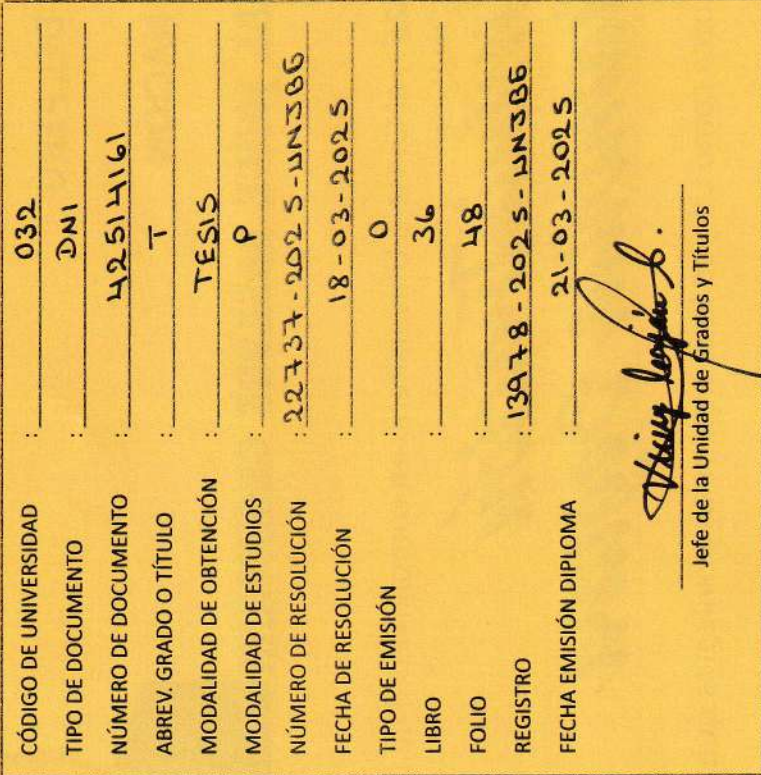 CÓDIGO DE UNIVERSIDAD : 032
TIPO DE DOCUMENTO : DNI
NÚMERO DE DOCUMENTO : 42514161
ABREV. GRADO O TÍTULO : T
MODALIDAD DE OBTENCIÓN : TESIS
MODALIDAD DE ESTUDIOS : P
NÚMERO DE RESOLUCIÓN : 22737-2025-UNJBG
FECHA DE RESOLUCIÓN : 18-03-2025
TIPO DE EMISIÓN : O
LIBRO : 36
FOLIO : 48
REGISTRO : 13978-2025-UNJBG
FECHA EMISIÓN DIPLOMA : 21-03-2025
Jefe de la Unidad de Grados y Títulos